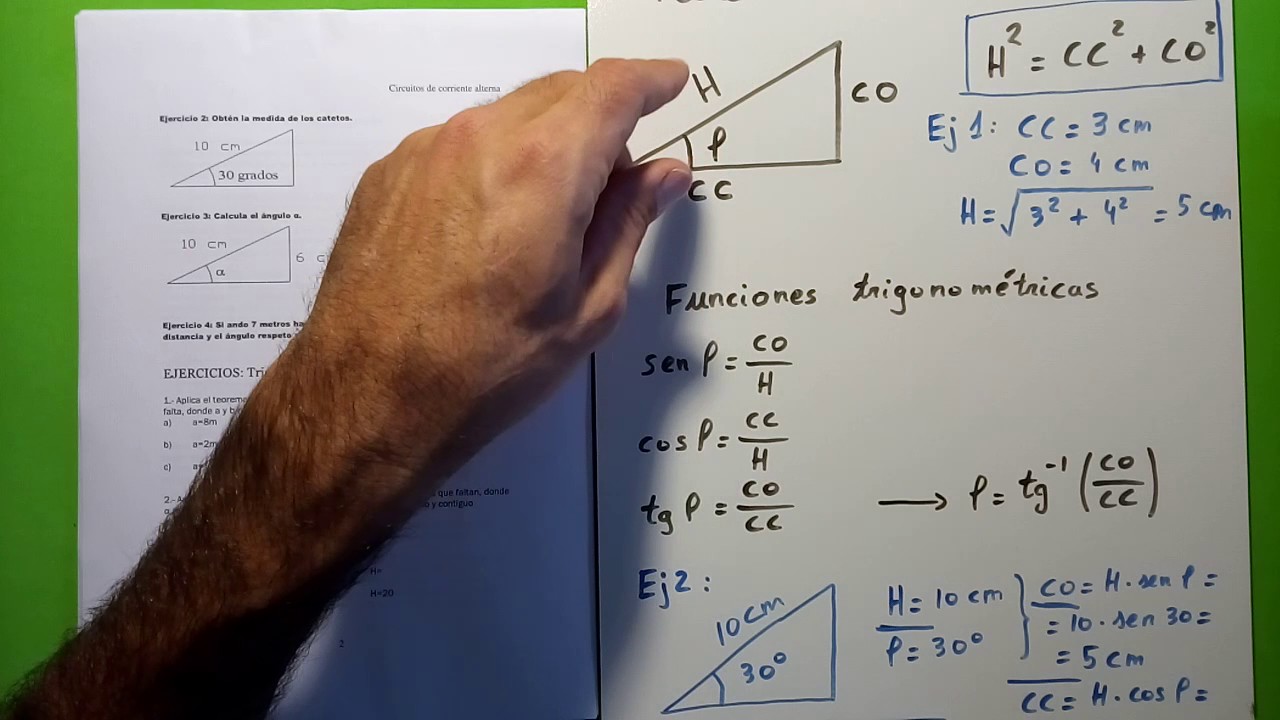 Circuitos de corriente alterna
Ejercicio 2: Obtén la medida de los catetos.
10 cm
30 grados
Ejercicio 3: Calcula el ángulo α.
10 cm
6
α
Ejercicio 4: Si ando 7 metros
distancia y el ángulo respeto
EJERCICIOS:
1.- Aplica el
falta, donde a y b
a) a=8m
b)
c)
2.-
que faltan, donde
y contiguo
H=
H=20
2
H
CO
ρ
CC
H² = CC² + CO²
Ej 1: CC = 3 cm
CO = 4 cm
H = √3² + 4² = 5 cm
Funciones trigonométricas
sen ρ = CO/H
cos ρ = CC/H
tg ρ = CO/CC → ρ = tg⁻¹ (CO/CC)
Ej2:
10 cm
30°
H = 10 cm
ρ = 30°
CO = H · sen ρ =
= 10 · sen 30 =
= 5 cm
CC = H · cos ρ =